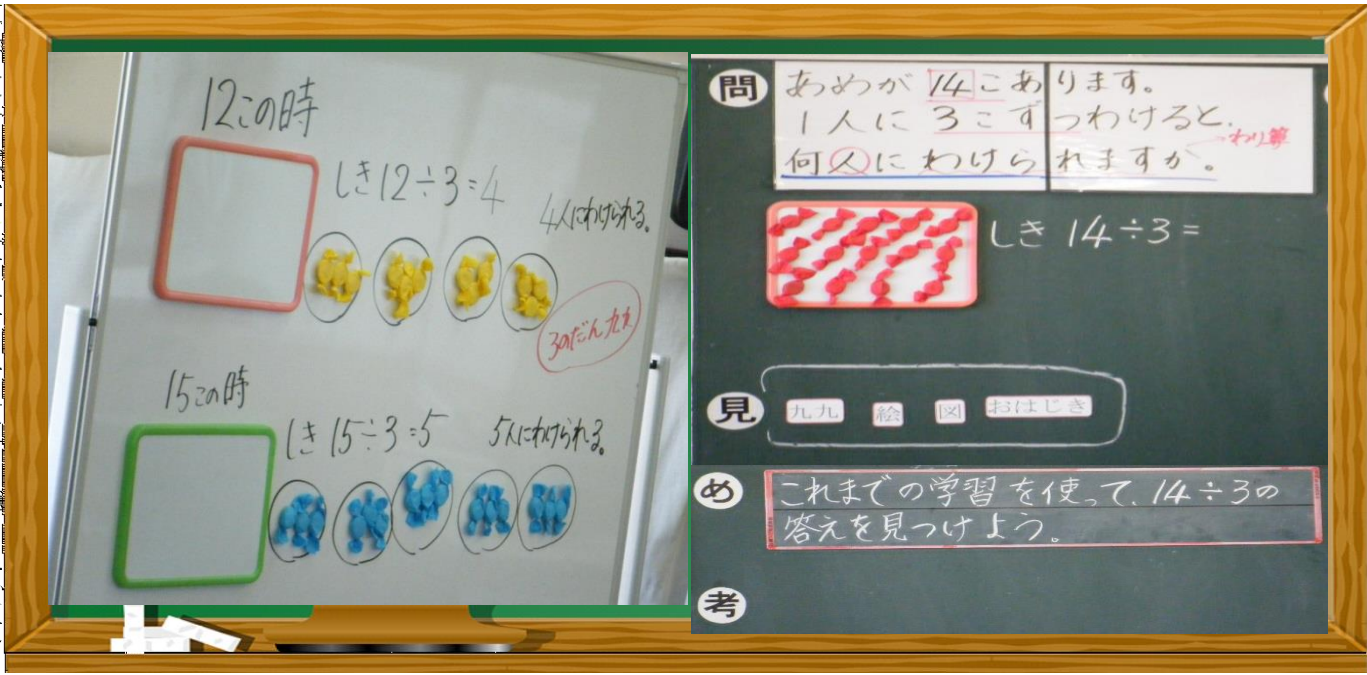 12この時
しき12÷3=4
4人にわけられる。
3のだん九九
15この時
しき 15÷3=5
5人にわけられる。
問
あめが 14こあります。
1人に 3こずつわけると、
わり算
何人にわけられますか。
しき 14÷3=
見
九九 絵 図 おはじき
め
これまでの学習を使って、14÷3の
答えを見つけよう。
考